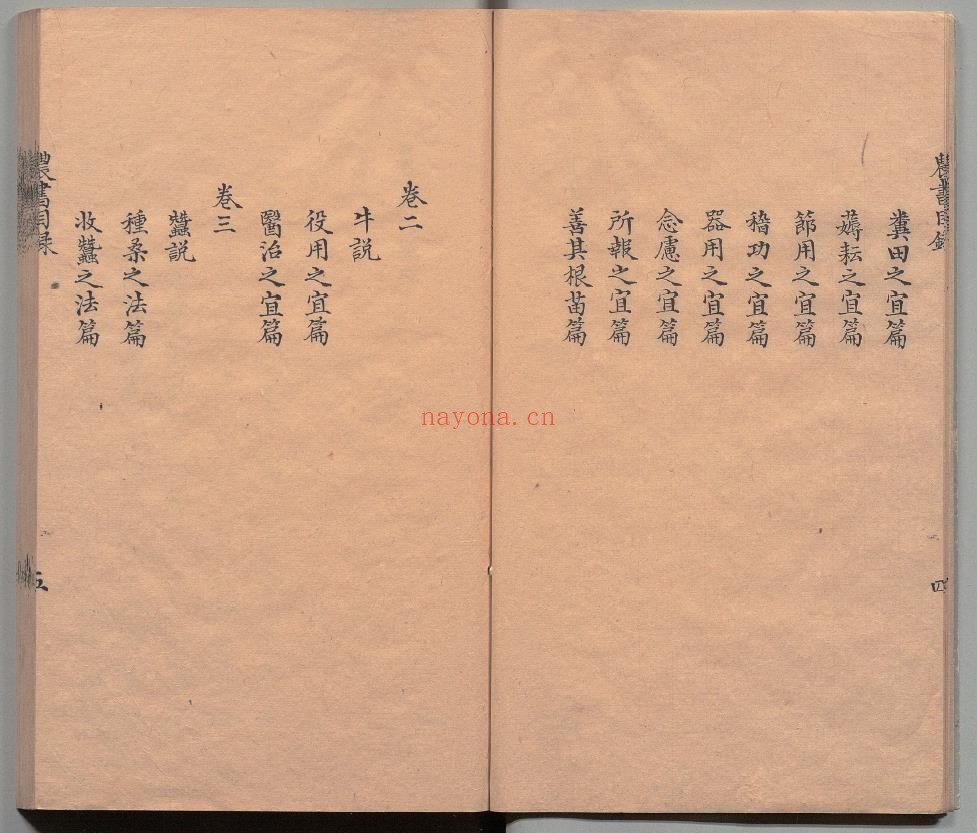 農書目錄
糞田之宜篇
薅耘之宜篇
節用之宜篇
稽功之宜篇
器用之宜篇
念慮之宜篇
所報之宜篇
善其根苗篇
四
卷二
牛説
役用之宜篇
醫治之宜篇
卷三
蠶説
種桑之法篇
收蠶之法篇
農書目録
五
nayona.cn